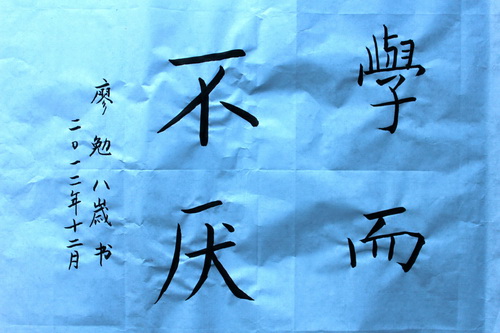 學而
不厌
廖勉八歲书
二〇一二年十二月